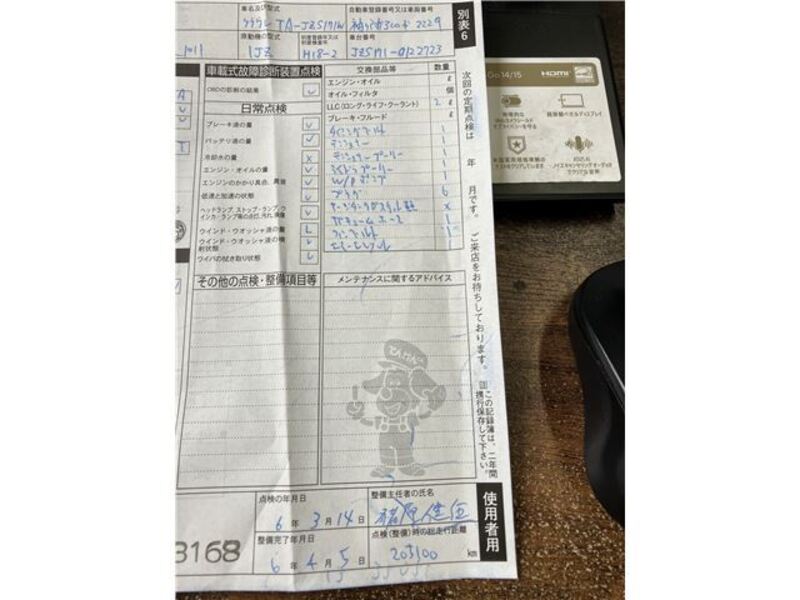 車名及び型式
自動車登録番号又は車両番号
クラウン TA-JZS171W
2229
原動機の型式
初度登録年又は初度検査年
車台番号
1JZ
H18-2
JZS171-0122723
別表6
車載式故障診断装置点検
OBDの診断の結果
日常点検
ブレーキ液の量
バッテリ液の量
冷却水の量
エンジン・オイルの量
エンジンのかかり具合、異音
低速と加速の状態
ヘッドランプ、ストップ・ランプ、ウインカ・ランプ等の点灯、汚れ、損傷
ウインド・ウオッシャ液の量
ウインド・ウオッシャ液の噴射状態
ワイパの拭き取り状態
交換部品等 数量
エンジン・オイル ℓ
オイル・フィルタ 個
LLC(ロング・ライフ・クーラント) 2 ℓ
ブレーキ・フルード ℓ
タイミングベルト 1
テンショナー 1
テンショナープーリー 1
アイドラプーリー 1
W/Pポンプ 1
プラグ 6
バキュームホース 1
ファンベルト 1
その他の点検・整備項目等
メンテナンスに関するアドバイス
てんけんくん
次回の定期点検は 年 月です。ご来店をお待ちしております。
この記録簿は、二年間携行保存して下さい。
点検の年月日
6年3月14日
整備主任者の氏名
整備完了年月日
6年4月5日
点検(整備)時の総走行距離
203100 km
3168
使用者用
Go 14/15
HDMI